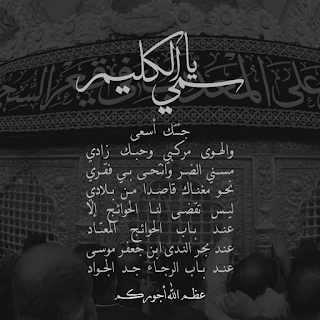 يا سمي الكليم
جئتك أسعى
والهوى مركبي وحبك زادي
مسني الضر وانتحى بي فقري
نحو مغناك قاصدا من بلادي
ليس تقضى لنا الحوائج إلا
عند باب الحوائج المعتاد
عند بحر الندى ابن جعفر موسى
عند باب الرجاء جد الجواد
عظم الله أجوركم